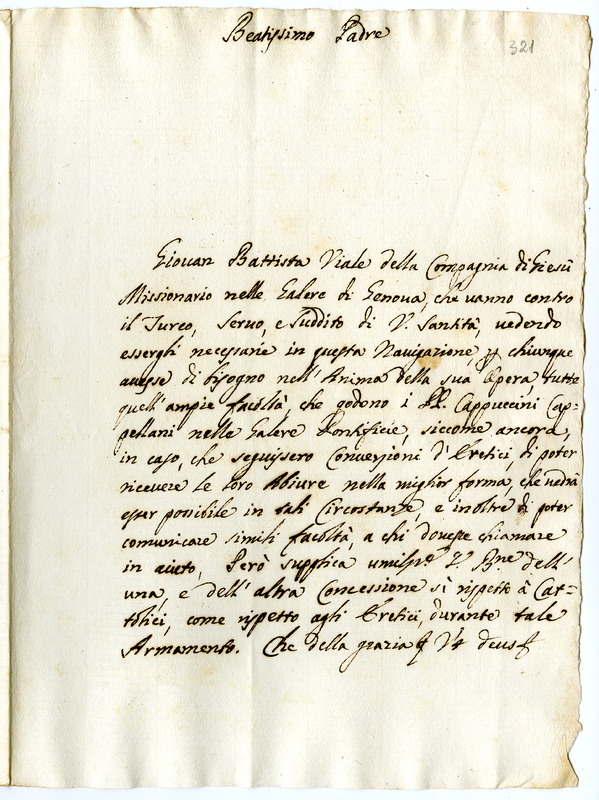 Beatissimo Padre
321
Giovan Battista Viale della Compagnia di Giesù
Missionario nelle Galere di Genova, che vanno contro
il Turco, Servo, e Suddito di V. Santità, vedendo
essergli necessarie in questa Navigazione, chiunque
avesse di bisogno nell'Anima della sua Opera tutte
quell'ampie facoltà, che godono i PP. Cappuccini Cap=
pellani nelle Galere Pontificie, siccome ancora,
in caso, che seguissero Conversioni d'Eretici, di poter
ricevere le loro Abiure nella miglior forma, che vedrà
esser possibile in tali Circostanze, e inoltre di poter
comunicare simili facoltà, a chi dovesse chiamare
in aiuto, Però supplica umilmte V. Bne dell'
una, e dell'altra Concessione sì rispetto à Cat=
tolici, come rispetto agli Eretici, durante tale
Armamento. Che della grazia deus